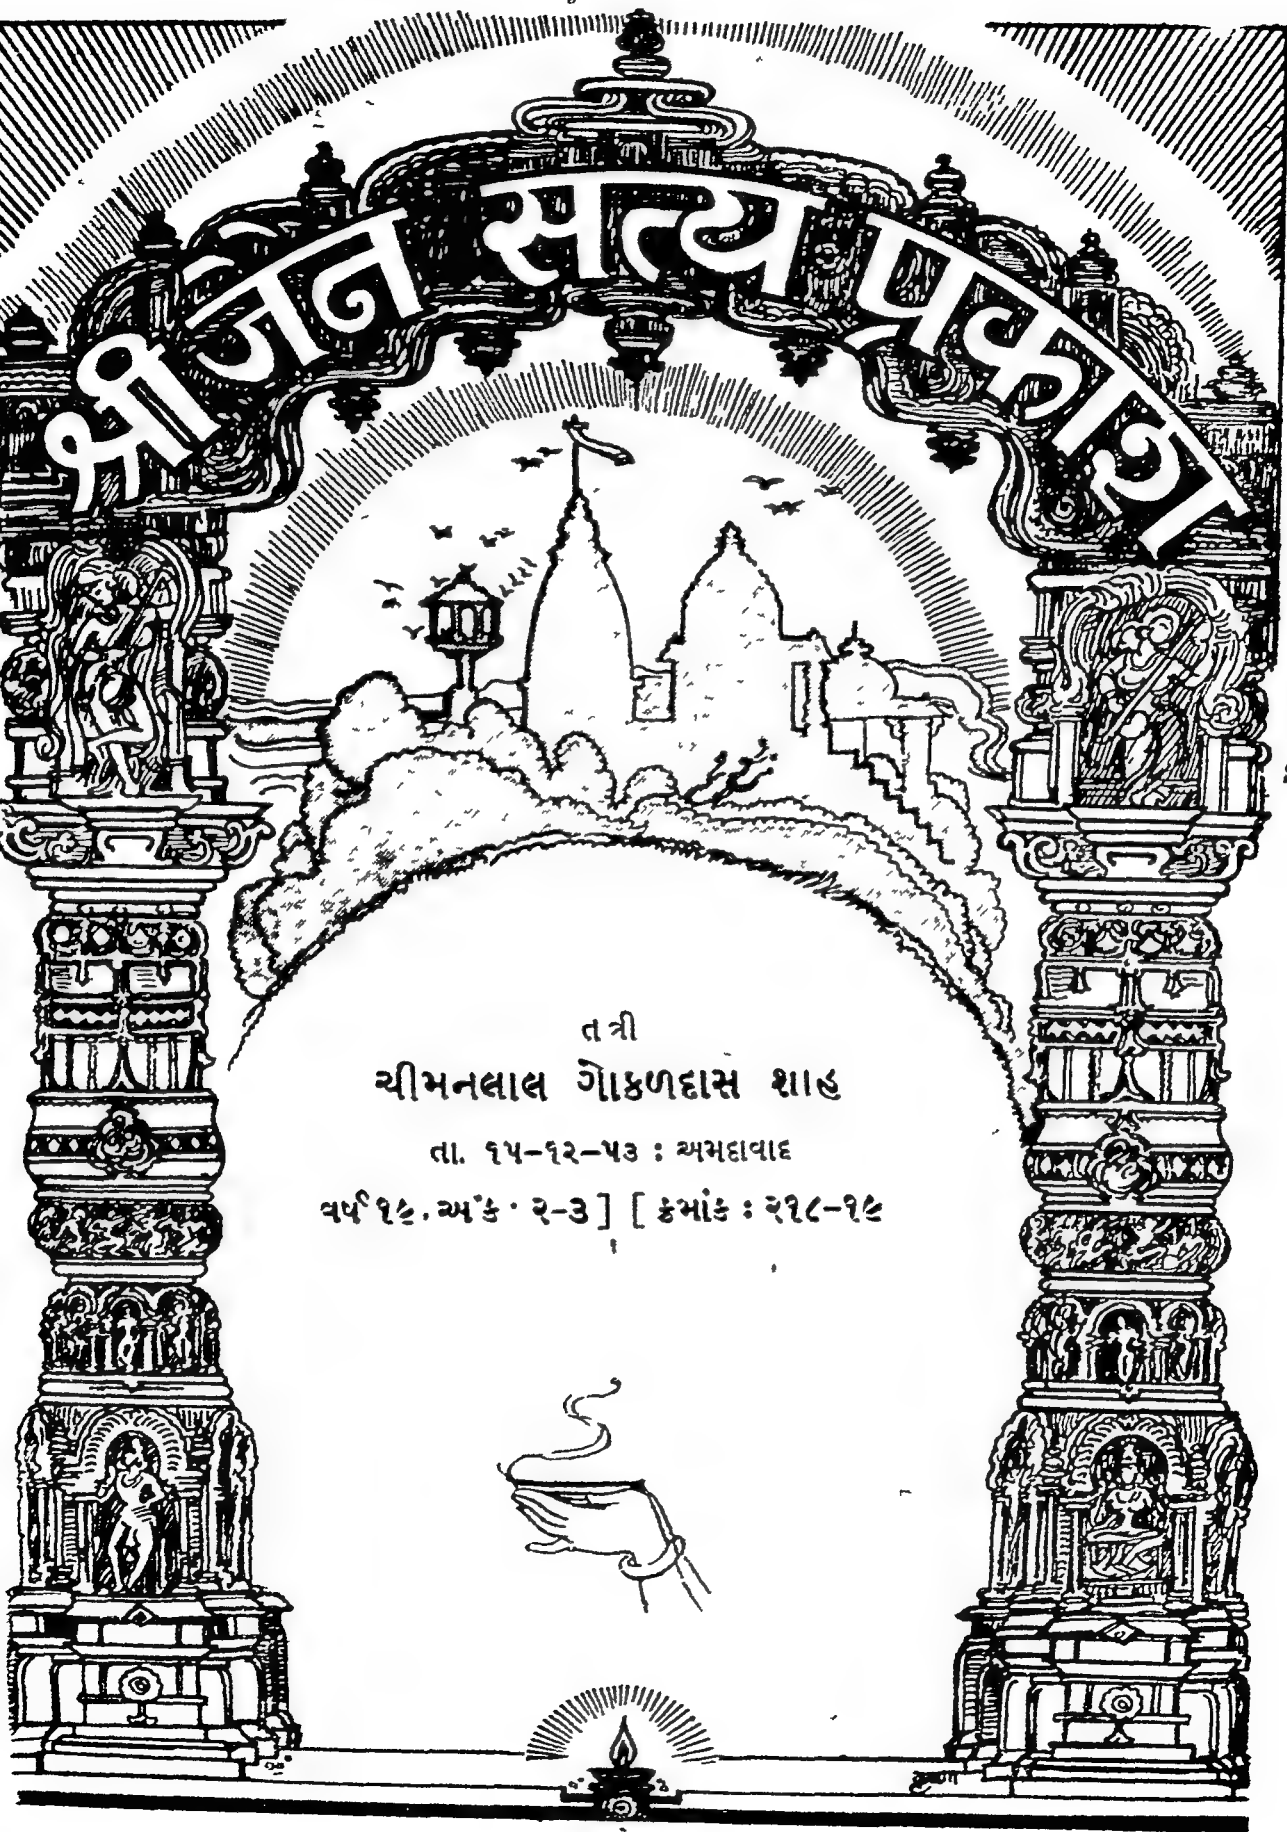 श्री जैन सत्य प्रकाश
તંત્રી
ચીમનલાલ ગોકળદાસ શાહ
તા. ૧૫-૧૨-૫૩ : અમદાવાદ
વર્ષ ૧૯. અંક : ૨-૩ ] [ ક્રમાંક : ૨૧૮-૧૯